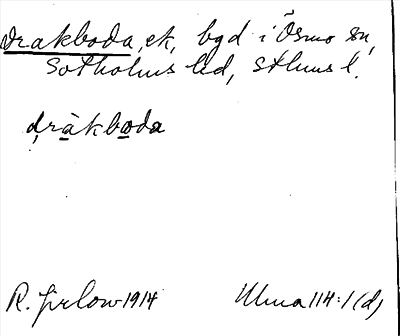 Drakboda, ek, bgd i Ösmo sn,
Sotholms hd, Sthlms l.
dràkboda
R. 1914 Ulma 114:1 (d)